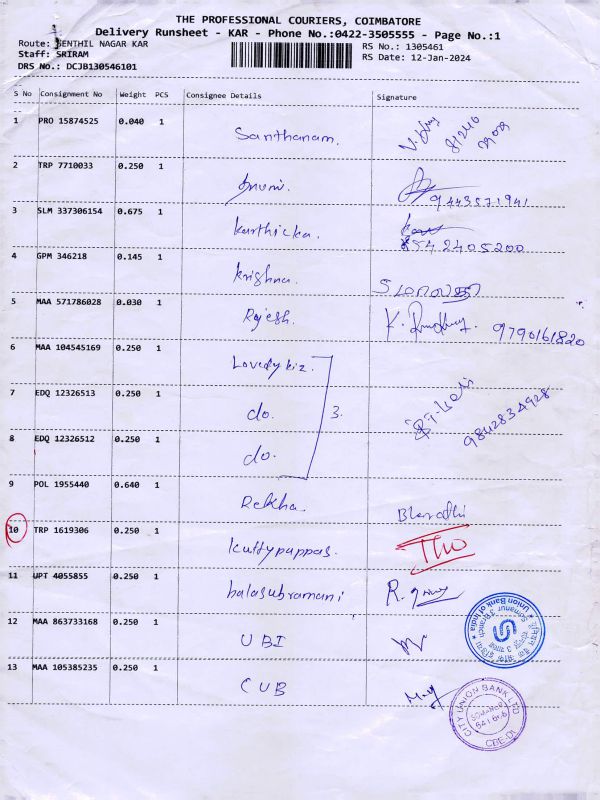 THE PROFESSIONAL COURIERS, COIMBATORE
Delivery Runsheet - KAR - Phone No.:0422-3505555 - Page No.:1
Route: SENTHIL NAGAR KAR
RS No.: 1305461
Staff: SRIRAM
RS Date: 12-Jan-2024
DRS No.: DCJB130546101
S No Consignment No Weight PCS Consignee Details Signature
1 PRO 15874525 0.040 1 Santhanam.
2 TRP 7710033 0.250 1 9443571941
3 SLM 337306154 0.675 1 karthicka.
4 GPM 346218 0.145 1 krishna.
5 MAA 571786028 0.030 1 Rajesh. 9790161820
6 MAA 104545169 0.250 1
7 EDQ 12326513 0.250 1 do. 3. 9842834928
8 EDQ 12326512 0.250 1 do.
9 POL 1955440 0.640 1 Rekha. Bharathi
10 TRP 1619306 0.250 1 kuttypappas.
11 UPT 4055855 0.250 1 balasubramani
12 MAA 863733168 0.250 1 UBI
Union Bank of India
13 MAA 105385235 0.250 1 CUB
CITY UNION BANK LTD
SOMANUR
641668
CBE-DT